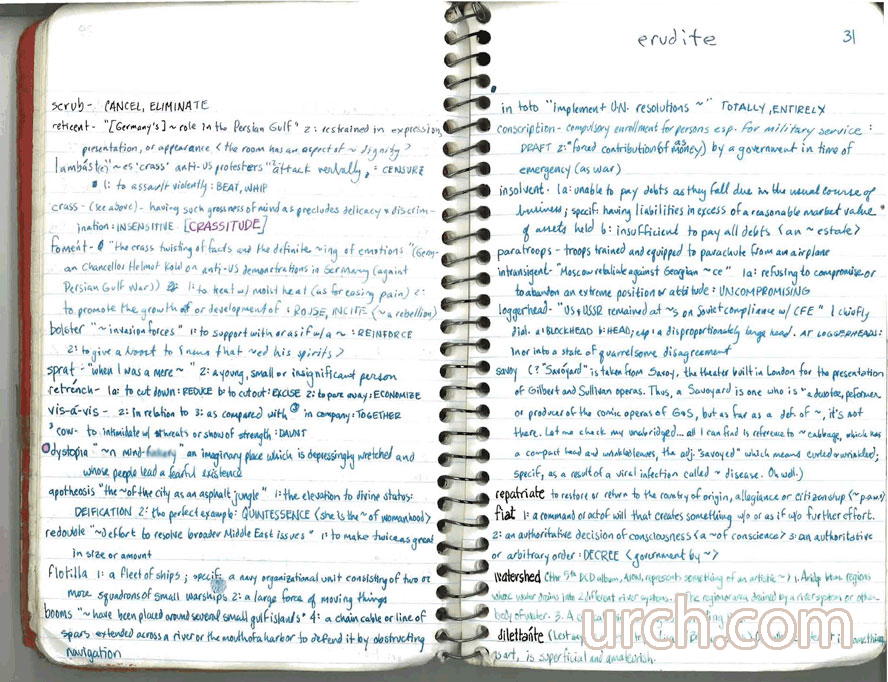 scrub- CANCEL, ELIMINATE
reticent- "[Germany's] ~ role in the Persian Gulf" 2: restrained in expression,
presentation, or appearance <the room has an aspect of ~ dignity>
lambást(e) ~es 'crass' anti-US protesters "2: attack verbally, : CENSURE
1: to assault violently: BEAT, WHIP
crass- (see above) - having such grossness of mind as precludes delicacy & discrim-
ination: INSENSITIVE [CRASSITUDE]
foment- "the crass twisting of facts and the definite ~ing of emotions" (Germ-
an Chancellor Helmut Kohl on anti-US demonstrations in Germany (againt
Persian Gulf War)) 1: to treat w/ moist heat (as for easing pain) 2:
to promote the growth of or development of: ROUSE, INCITE (~ a rebellion)
bolster "~ invasion forces" 1: to support with or as if w/ a ~ : REINFORCE
2: to give a boost to <news that ~ed his spirits>
sprat- "when I was a mere ~" 2: a young, small or insignificant person
retrench- 1a: to cut down: REDUCE b: to cut out: EXCISE 2: to pare away: ECONOMIZE
vis-á-vis- 2: in relation to 3: as compared with in company: TOGETHER
3 cow- to intimidate w/ threats or show of strength: DAUNT
dystopia "~n mind- " an imaginary place which is depressingly wretched and
whose people lead a fearful existence
apotheosis "the ~ of the city as an asphalt jungle" 1: the elevation to divine status:
DEIFICATION 2: the perfect example: QUINTESSENCE <she is the ~ of womanhood>
redouble "~d effort to resolve broader Middle East issues" 1: to make twice as great
in size or amount
flotilla 1: a fleet of ships; specif: a navy organizational unit consisting of two or
more squadrons of small warships 2: a large force of moving things
booms "~ have been placed around several small gulf islands" 4: a chain cable or line of
spars extended across a river or the mouth of a harbor to defend it by obstructing
navigation
erudite 31
in toto "implement U.N. resolutions ~" TOTALLY, ENTIRELY
conscription- compulsory enrollment for persons esp. for military service:
DRAFT 2: "forced contribution (of as money) by a government in time of
emergency (as war)
insolvent- 1a: unable to pay debts as they fall due in the usual course of
business; specif: having liabilities in excess of a reasonable market value
of assets held b: insufficient to pay all debts <an ~ estate>
paratroops - troops trained and equipped to parachute from an airplane
intransigent- "Moscow retaliate against Georgian ~ce" 1a: refusing to compromise or
to abandon an extreme position or attitude: UNCOMPROMISING
loggerhead- "US & USSR remained at ~s on Soviet compliance w/ CFE" 1 chiefly
dial. a: BLOCKHEAD b: HEAD; esp: a disproportionately large head. AT LOGGERHEADS:
in or into a state of quarrelsome disagreement
savoy (? "Savóyard" is taken from Savoy, the theater built in London for the presentation
of Gilbert and Sullivan operas. Thus, a Savoyard is one who is "a devotee, performer
or producer of the comic operas of G&S, but as far as a def. of ~, it's not
there. Let me check my unabridged... all I can find is reference to ~ cabbage, which has
a compact head and wrinkled leaves, the adj. "savoyed" which means curled or wrinkled;
specif, as a result of a viral infection called ~ disease. Oh well.)
repatriate to restore or return to the country of origin, allegiance or citizenship <~ pows>
fiat 1: a command or act of will that creates something w/o or as if w/o further effort.
2: an authoritative decision of consciousness <a ~ of conscience> 3: an authoritative
or arbitrary order: DECREE <government by ~>
watershed (their 5th DCD album, AION, represents something of an artistic ~) 1. A ridge betw. regions
whose water drains into 2 different river systems. The region or area drained by a river system or other
body of water. 3. A
dilettante
is art, is superficial and amateurish.
urch.com